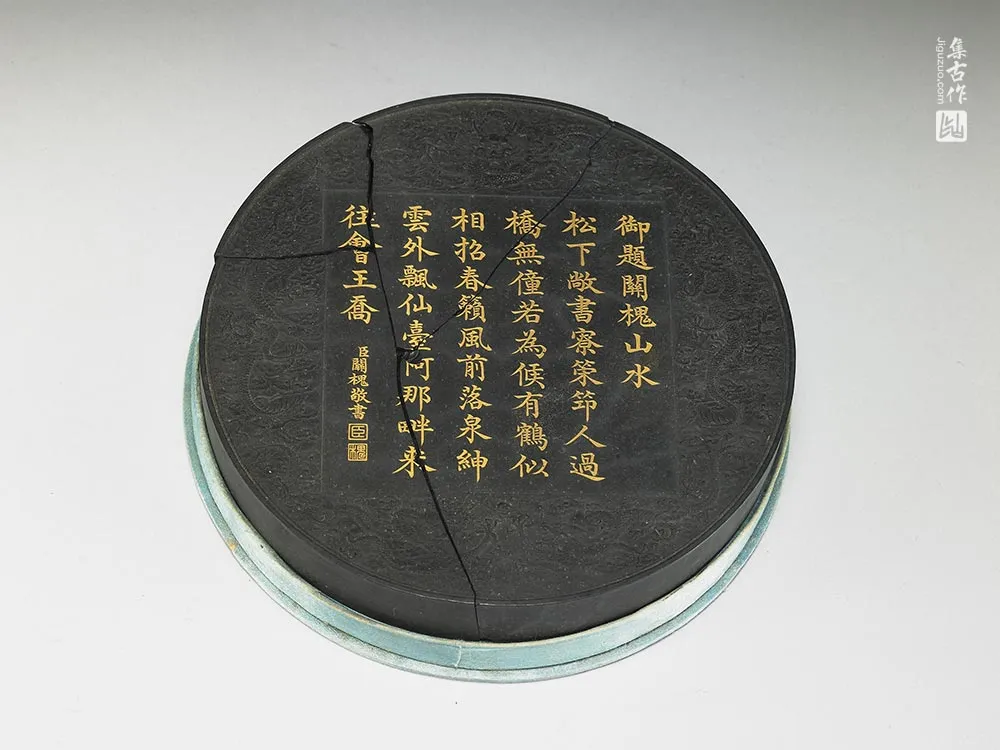 御題關槐山水
松下敞書寮策笻人過
橋無僮若為候有鶴似
相招春籟風前落泉紳
雲外飄仙臺阿那畔来
往會王喬
臣關槐敬書
臣
槐
集古作
Jiguzuo.com